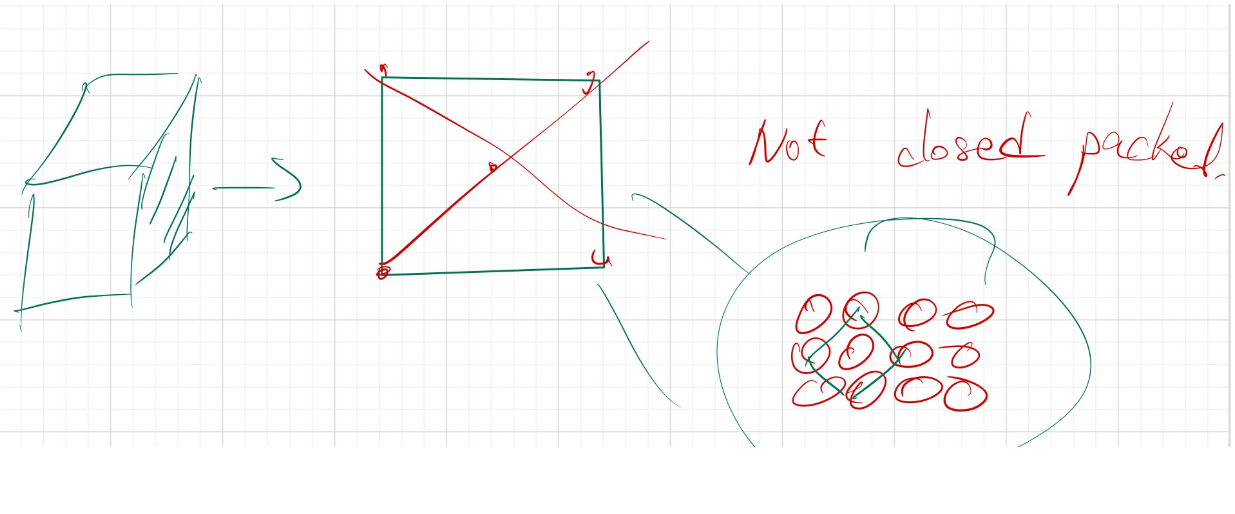 Not closed packed.